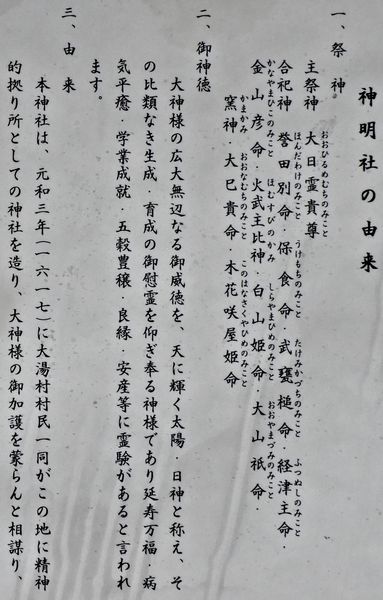 神明社の由来
一、祭神
主祭神　大日霊貴尊
おおひるめむちのみこと
合祀神　誉田別命・保食命・武甕槌命・経津主命・
ほんだわけのみこと　うけもちのみこと　たけみかづちのみこと　ふつぬしのみこと
金山彦命・火武主比神・白山姫命・大山祇命・
かなやまひこのみこと　ほむすびのかみ　しらやまひめのみこと　おおやまづみのみこと
窯神・大巳貴命・木花咲屋姫命
かまかみ　おおなむちのみこと　このはなさくやひめのみこと
二、御神徳
大神様の広大無辺なる御威徳を、天に輝く太陽　日神と称え、そ
の比類なき生成・育成の御慰霊を仰ぎ奉る神様であり延寿万福・病
気平癒・学業成就・五穀豊穣・良縁・安産等に霊験があると言われ
ます。
三、由来
本神社は、元和三年（一六一七）に大湯村村民一同がこの地に精神
的拠り所としての神社を造り、大神様の御加護を蒙らんと相謀り、